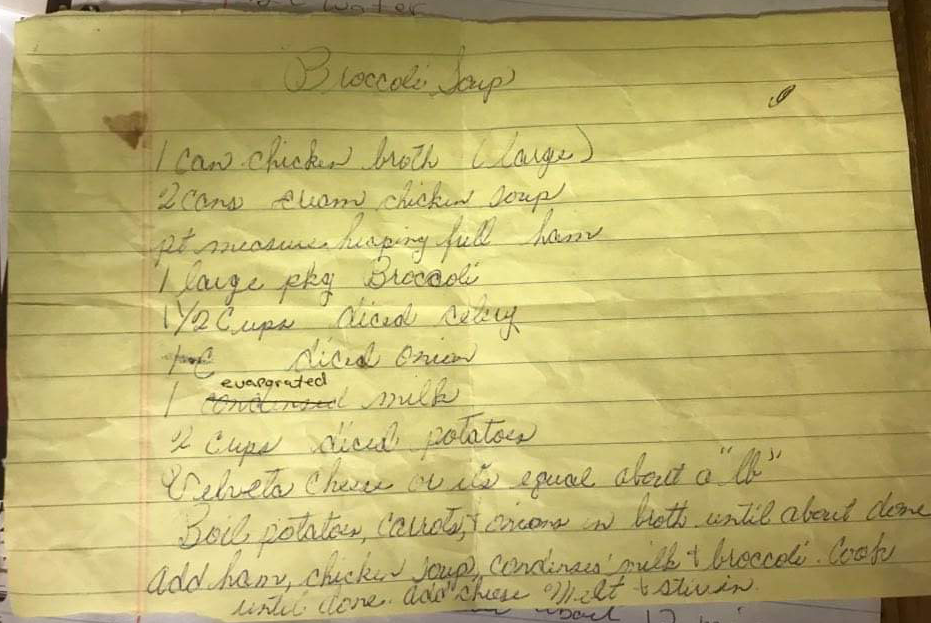 water
Broccoli Soup
1 can chicken broth (large)
2 cans cream chicken soup
pt measure heaping full ham
1 large pkg Broccoli
1 1/2 Cups diced celery
1 C diced onion
evaporated
1 condensed milk
2 Cups diced potatoes
Velveeta cheese or its equal about a "lb"
Boil potatoes, carrots, & onions in broth until about done
add ham, chicken soup, condenses milk & broccoli. Cook
until done. add cheese Melt & stir in.